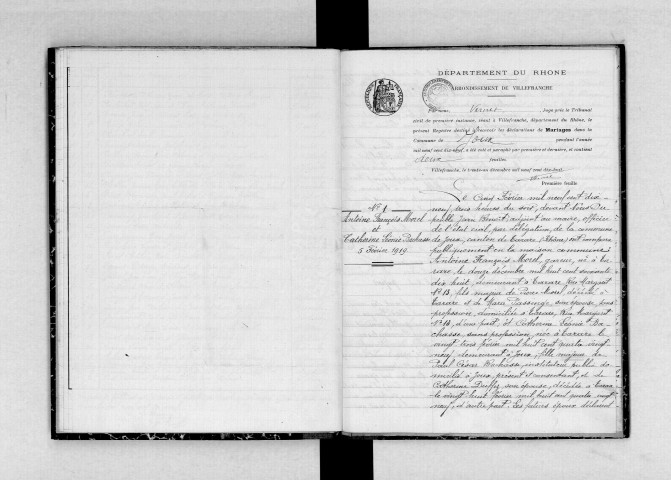 DÉPARTEMENT DU RHONE
ARRONDISSEMENT DE VILLEFRANCHE
Vernet, Juge près le Tribunal
civil de première instance, séant à Villefranche, département du Rhône, le
présent Registre destiné à recevoir les déclarations de Mariages dans la
Commune de Joux pendant l'année
mil neuf cent dix-neuf, a été coté et paraphé par première et dernière, et contient
deux feuilles.
Villefranche, le trente-un décembre mil neuf cent dix-huit.
Première feuille
N° 1
Antoine François Morel
et
Catherine Léonie Duchasse
5 Février 1919
Le Cinq Février mil neuf cent dix-
neuf, trois heures du soir, devant Nous
Jean Benoit, adjoint au maire, officier
de l'état civil, par délégation, de la commune
de Joux, canton de Tarare, (Rhône) ont comparu
publiquement en la maison commune
Antoine François Morel, né à Ta-
rare, le douze décembre mil huit cent soixante
dix huit, demeurant à Tarare, Rue
N° 13, fils majeur de Morel, décédé à
Tarare et de son épouse, sans
profession, domiciliée à Tarare, Rue
N° 13, d'une part, Et Catherine Léonie
sans profession, née à Tarare le
vingt trois février mil huit cent quatre vingt
neuf, demeurant à Joux, fille majeure de
Paul César instituteur public do-
micilié à Joux, présent et consentant, et de
Catherine son épouse, décédée à Tarare
le vingt huit février mil huit cent quatre vingt
neuf, d'autre part. Les futurs époux déclarent